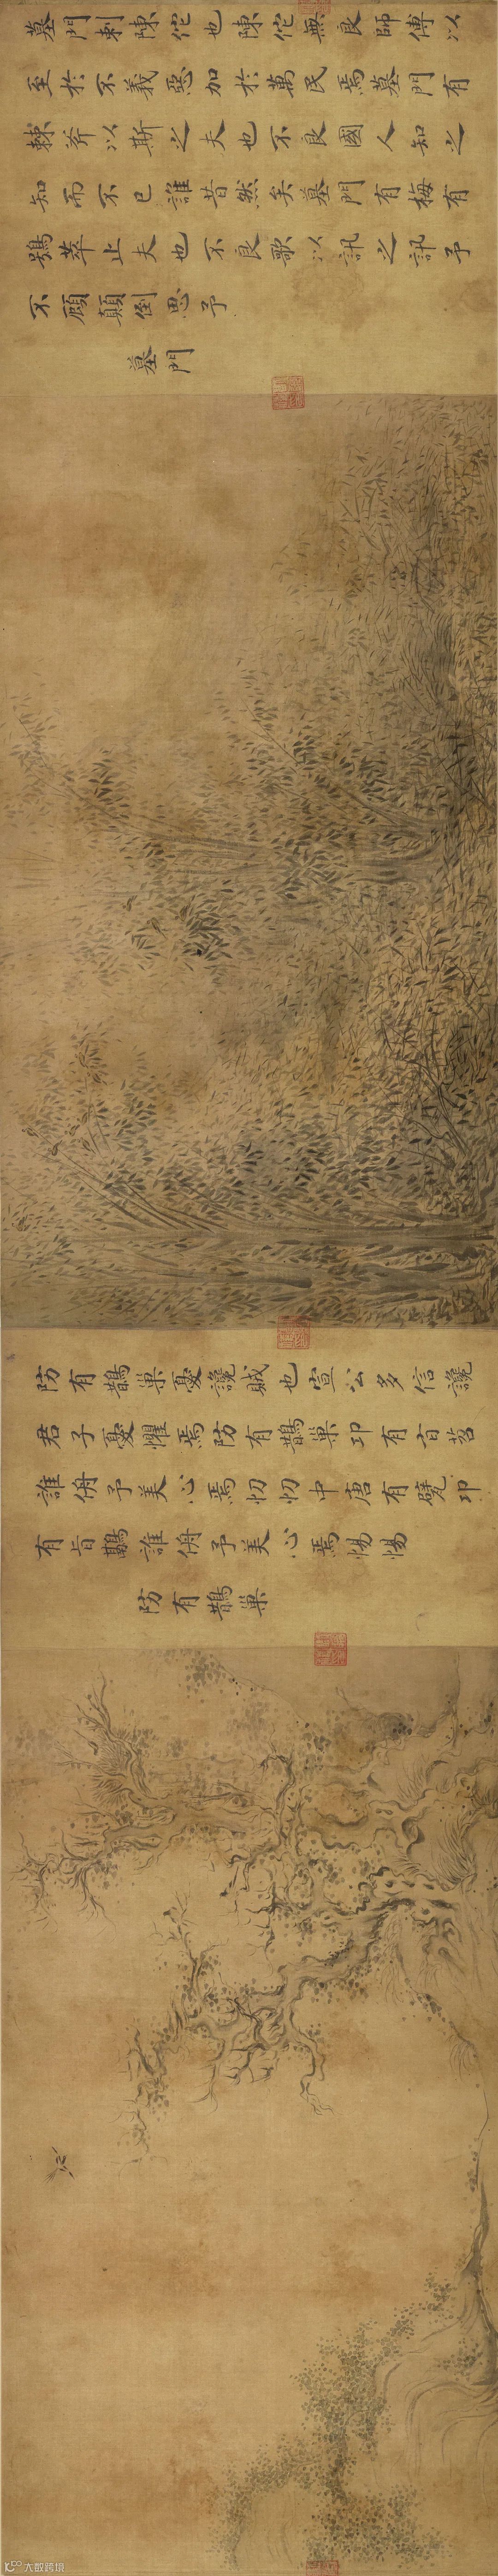 墓門刺陳佗也陳佗無良師傅以
至於不義惡加於萬民焉墓門有
棘斧以斯之夫也不良國人知之
知而不已誰昔然矣墓門有梅有
鴞萃止夫也不良歌以訊之訊予
不顧顛倒思予
墓門
防有鵲巢憂讒賊也宣公多信讒
君子憂懼焉防有鵲巢卭有旨苕
誰侜予美心焉忉忉中唐有甓卭
有旨鷊誰侜予美心焉惕惕
防有鵲巢
大数跨境